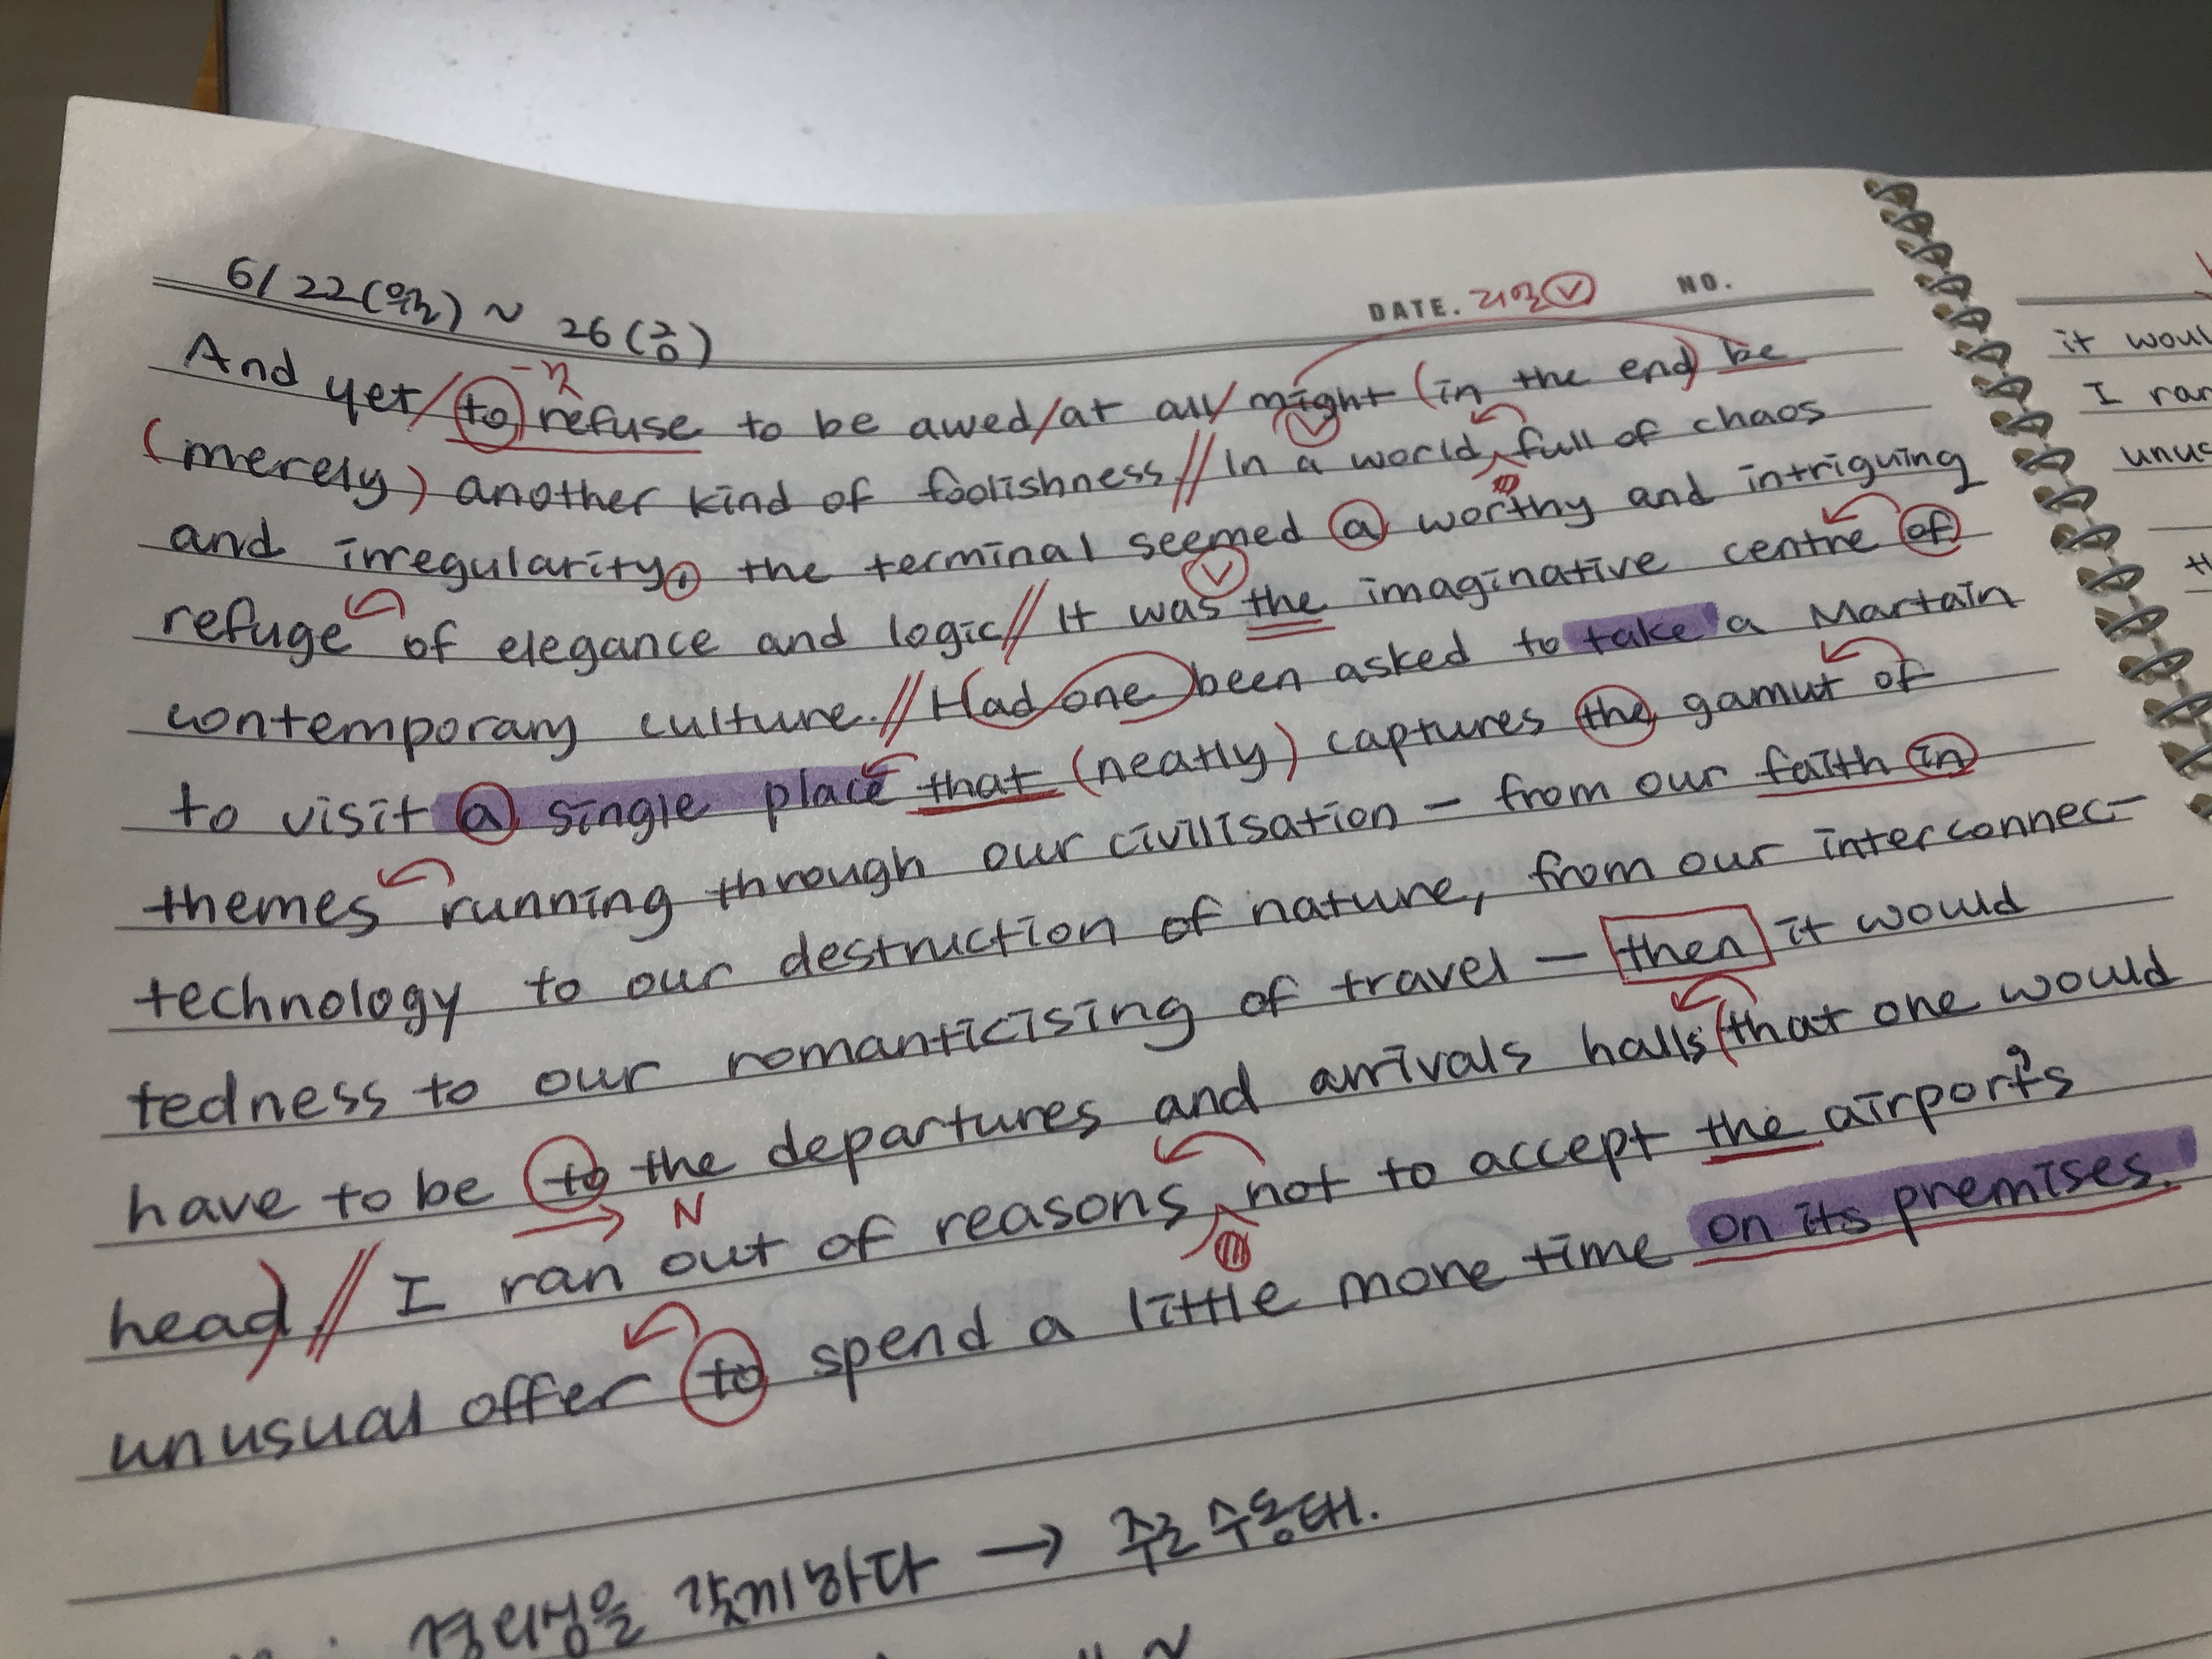 6/22(월) ~ 26(금)
DATE. 리얼 V NO.
And yet / to refuse to be awed / at all / might (in the end) be
(merely) another kind of foolishness // In a world full of chaos
and irregularity, the terminal seemed a worthy and intriguing
refuge of elegance and logic // It was the imaginative centre of
contemporary culture. // Had one been asked to take a Martain
to visit a single place that (neatly) captures the gamut of
themes running through our civilisation – from our faith in
technology to our destruction of nature, from our interconnec-
tedness to our romanticising of travel – then it would
have to be to the departures and arrivals halls (that one would
head). // I ran out of reasons not to accept the airport's
N
unusual offer to spend a little more time on its premises.
경외심을 갖게하다 → 주로 수동태.
it woul
I ran
unus